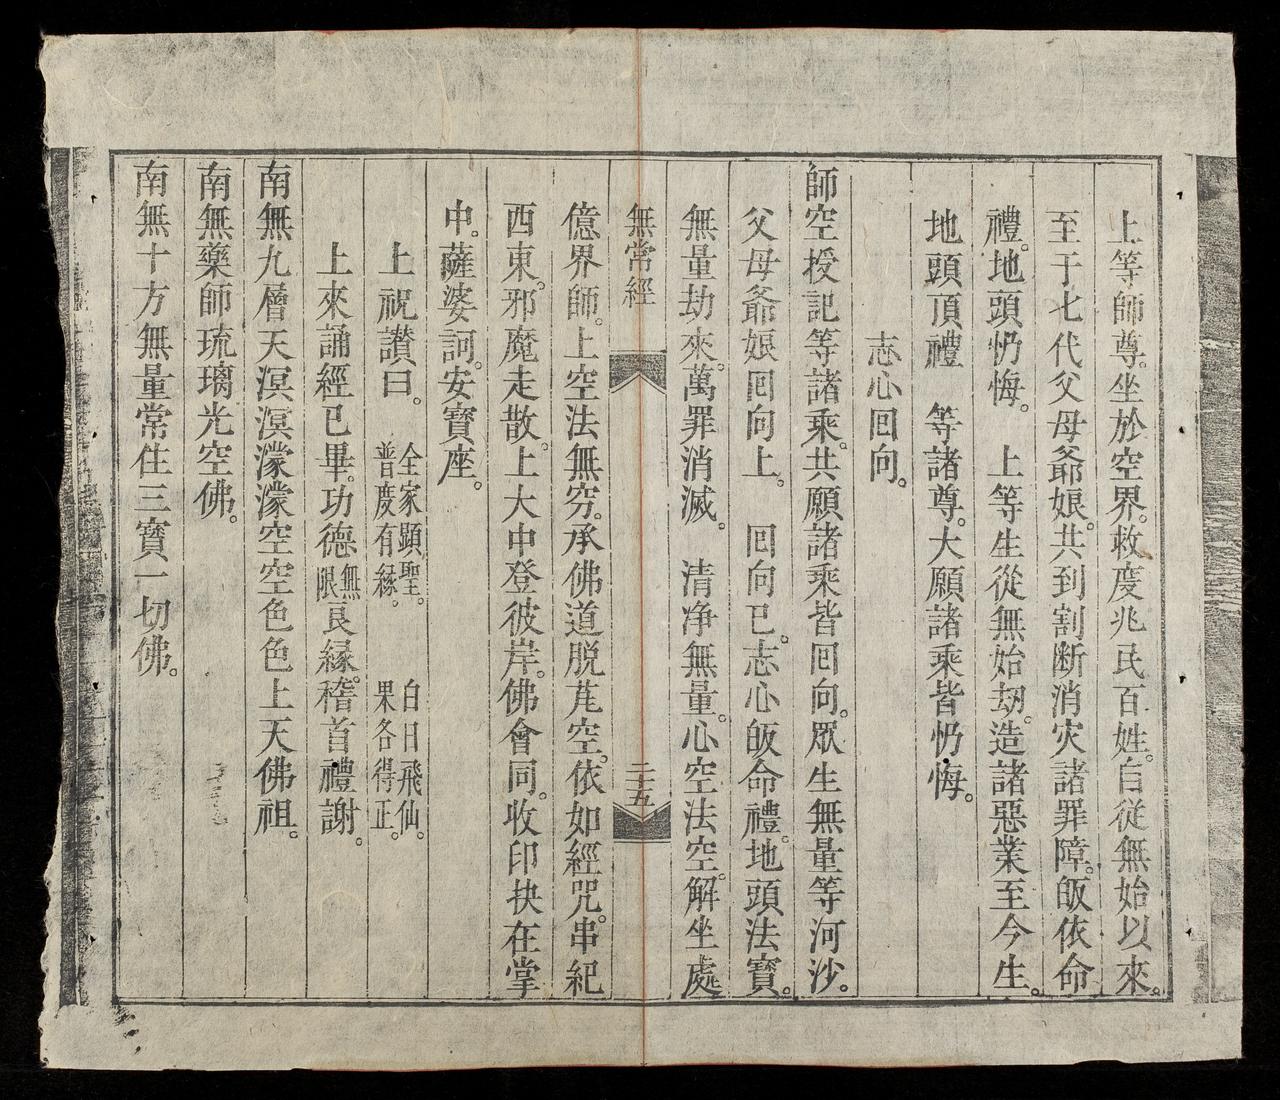 上等師尊。坐於空界。救度兆民百姓。自從無始以來。
至于七代父母爺娘。共到割断消灾諸罪障。皈依命
禮。地頭忉悔。　上等生從無始劫。造諸惡業至今生。
地頭頂禮　等諸尊。大願諸乘皆忉悔。
志心囘向。
師空授記等諸乘。共願諸乘皆囘向。眾生無量等河沙。
父母爺娘囘向上。　囘向已。志心皈命禮。地頭法寶。
無量劫來。萬罪消滅。　清净無量。心空法空。解坐處
無常經　二十五
億界師。上空法無穷。承佛道脱苊空。依如經咒。串紀
西東。邪魔走散。上大中登彼岸。佛會同。收印抉在掌
中。薩婆訶。安寶座。
上祝讃曰。　全家顕聖。普度有縁。　白日飛仙。果各得正。
上來誦經已畢。功德無限良縁。稽首禮謝。
南無九層天溟溟濛濛空空色色上天佛祖。
南無藥師琉璃光空佛。
南無十方無量常住三寳一切佛。